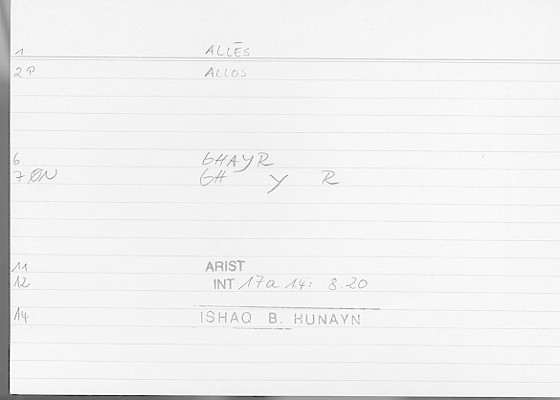 1 ALLĒS
2 P ALLOS
6 GHAYR
7 ØN GH Y R
11 ARIST
12 INT 17a 14: 8.20
14 ISHAQ B. HUNAYN